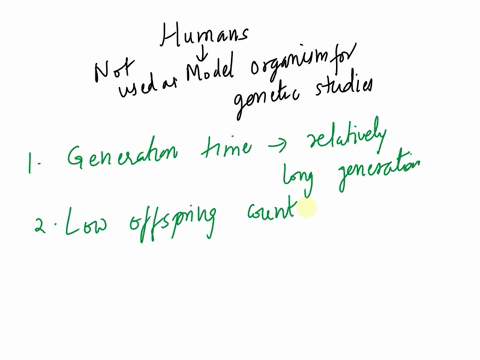 Humans
↓
Not used as Model organism for
genetic studies
1. Generation time → relatively
long generation
2. Low offspring count